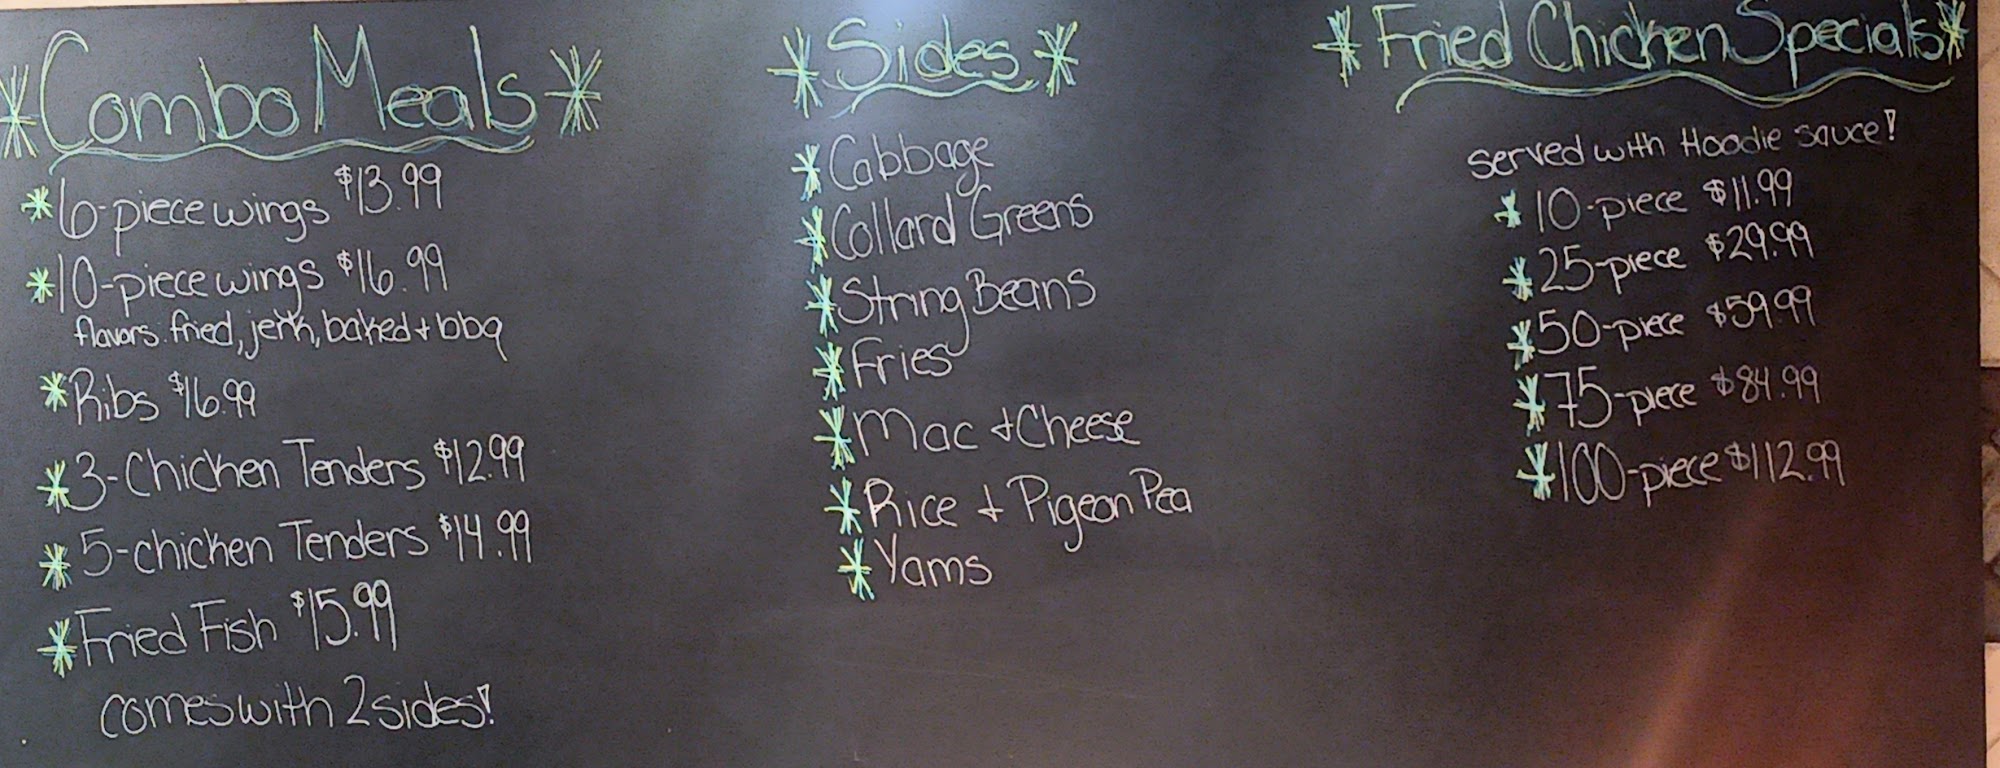 *Combo Meals*
*6-piece wings $13.99
*10-piece wings $16.99
flavors: fried, jerk, baked + bbq
*Ribs $16.99
*3-Chicken Tenders $12.99
*5-chicken Tenders $14.99
*Fried Fish $15.99
comes with 2 sides!
*Sides*
*Cabbage
*Collard Greens
*String Beans
*Fries
*Mac + Cheese
*Rice + Pigeon Pea
*Yams
*Fried Chicken Specials*
served with Hoodie sauce!
*10-piece $11.99
*25-piece $29.99
*50-piece $59.99
*75-piece $84.99
*100-piece $112.99